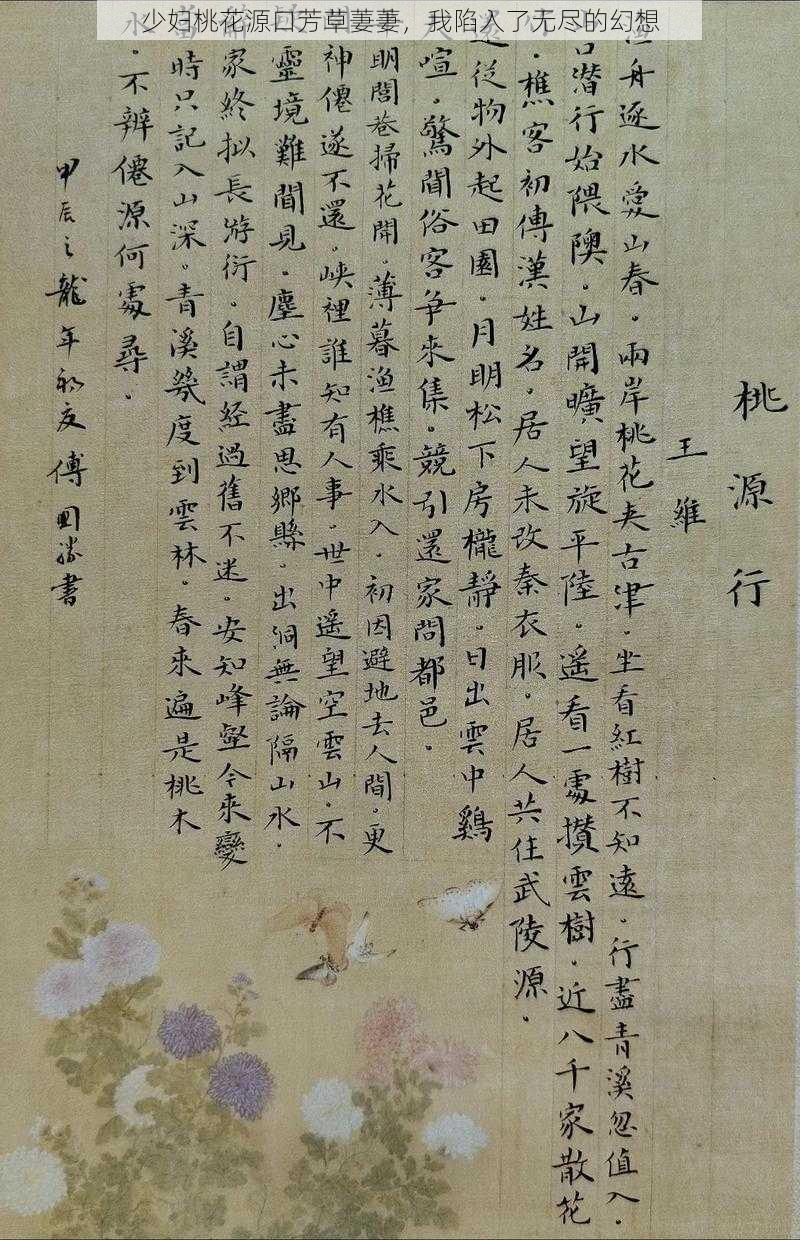 少妇桃花源口芳草萋萋，我陷入了无尽的幻想
桃源行
王維
舟逐水爱山春。兩岸桃花夹古津。坐看紅樹不知遠。行盡青溪忽值入。
潜行始隈隩。山開曠望旋平陸。遥看一處攢雲樹。近八千家散花
樵客初傳漢姓名。居人未改秦衣服。居人共住武陵源。
從物外起田園。月明松下房櫳靜。日出雲中鷄
喧。驚聞俗客争來集。競引還家問都邑。
明閭巷掃花開。薄暮渔樵乘水入。初因避地去人間。更
神僊遂不還。峡裡誰知有人事。世中遥望空雲山。不
靈境難聞見。塵心未盡思鄉縣。出洞無論隔山水。
家終拟長游衍。自謂經過舊不迷。安知峰壑今來變
時只記入山深。青溪幾度到雲林。春來遍是桃木
水。不辨僊源何處尋。
甲辰之龍年初夏傅国勝書